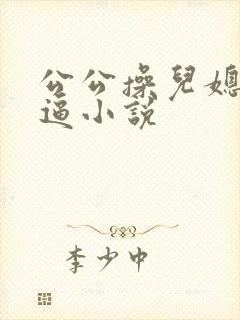 公公操兒媳
逼小説
李少中